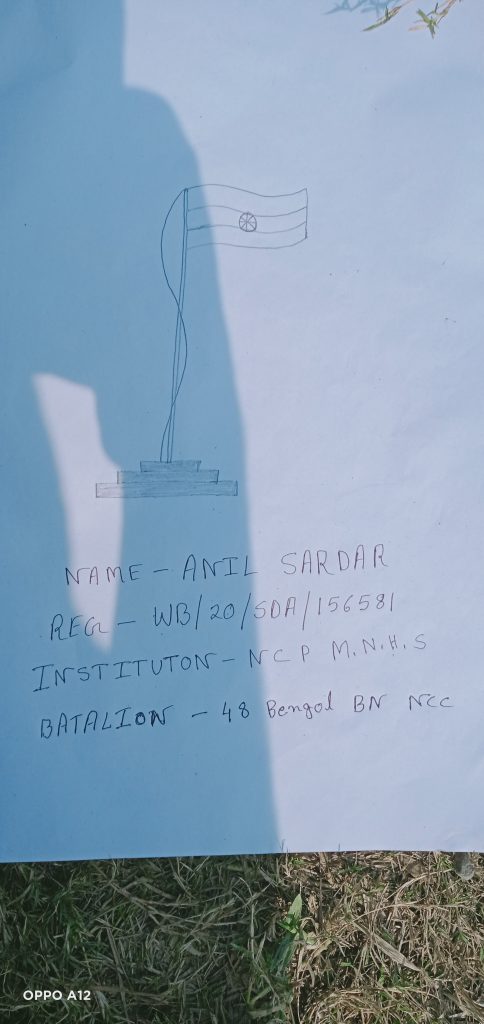 NAME - ANIL SARDAR
REG - WB/20/SDA/156581
INSTITUTON - NCP M.N.H.S
BATALION - 48 Bengol BN NCC
OPPO A12